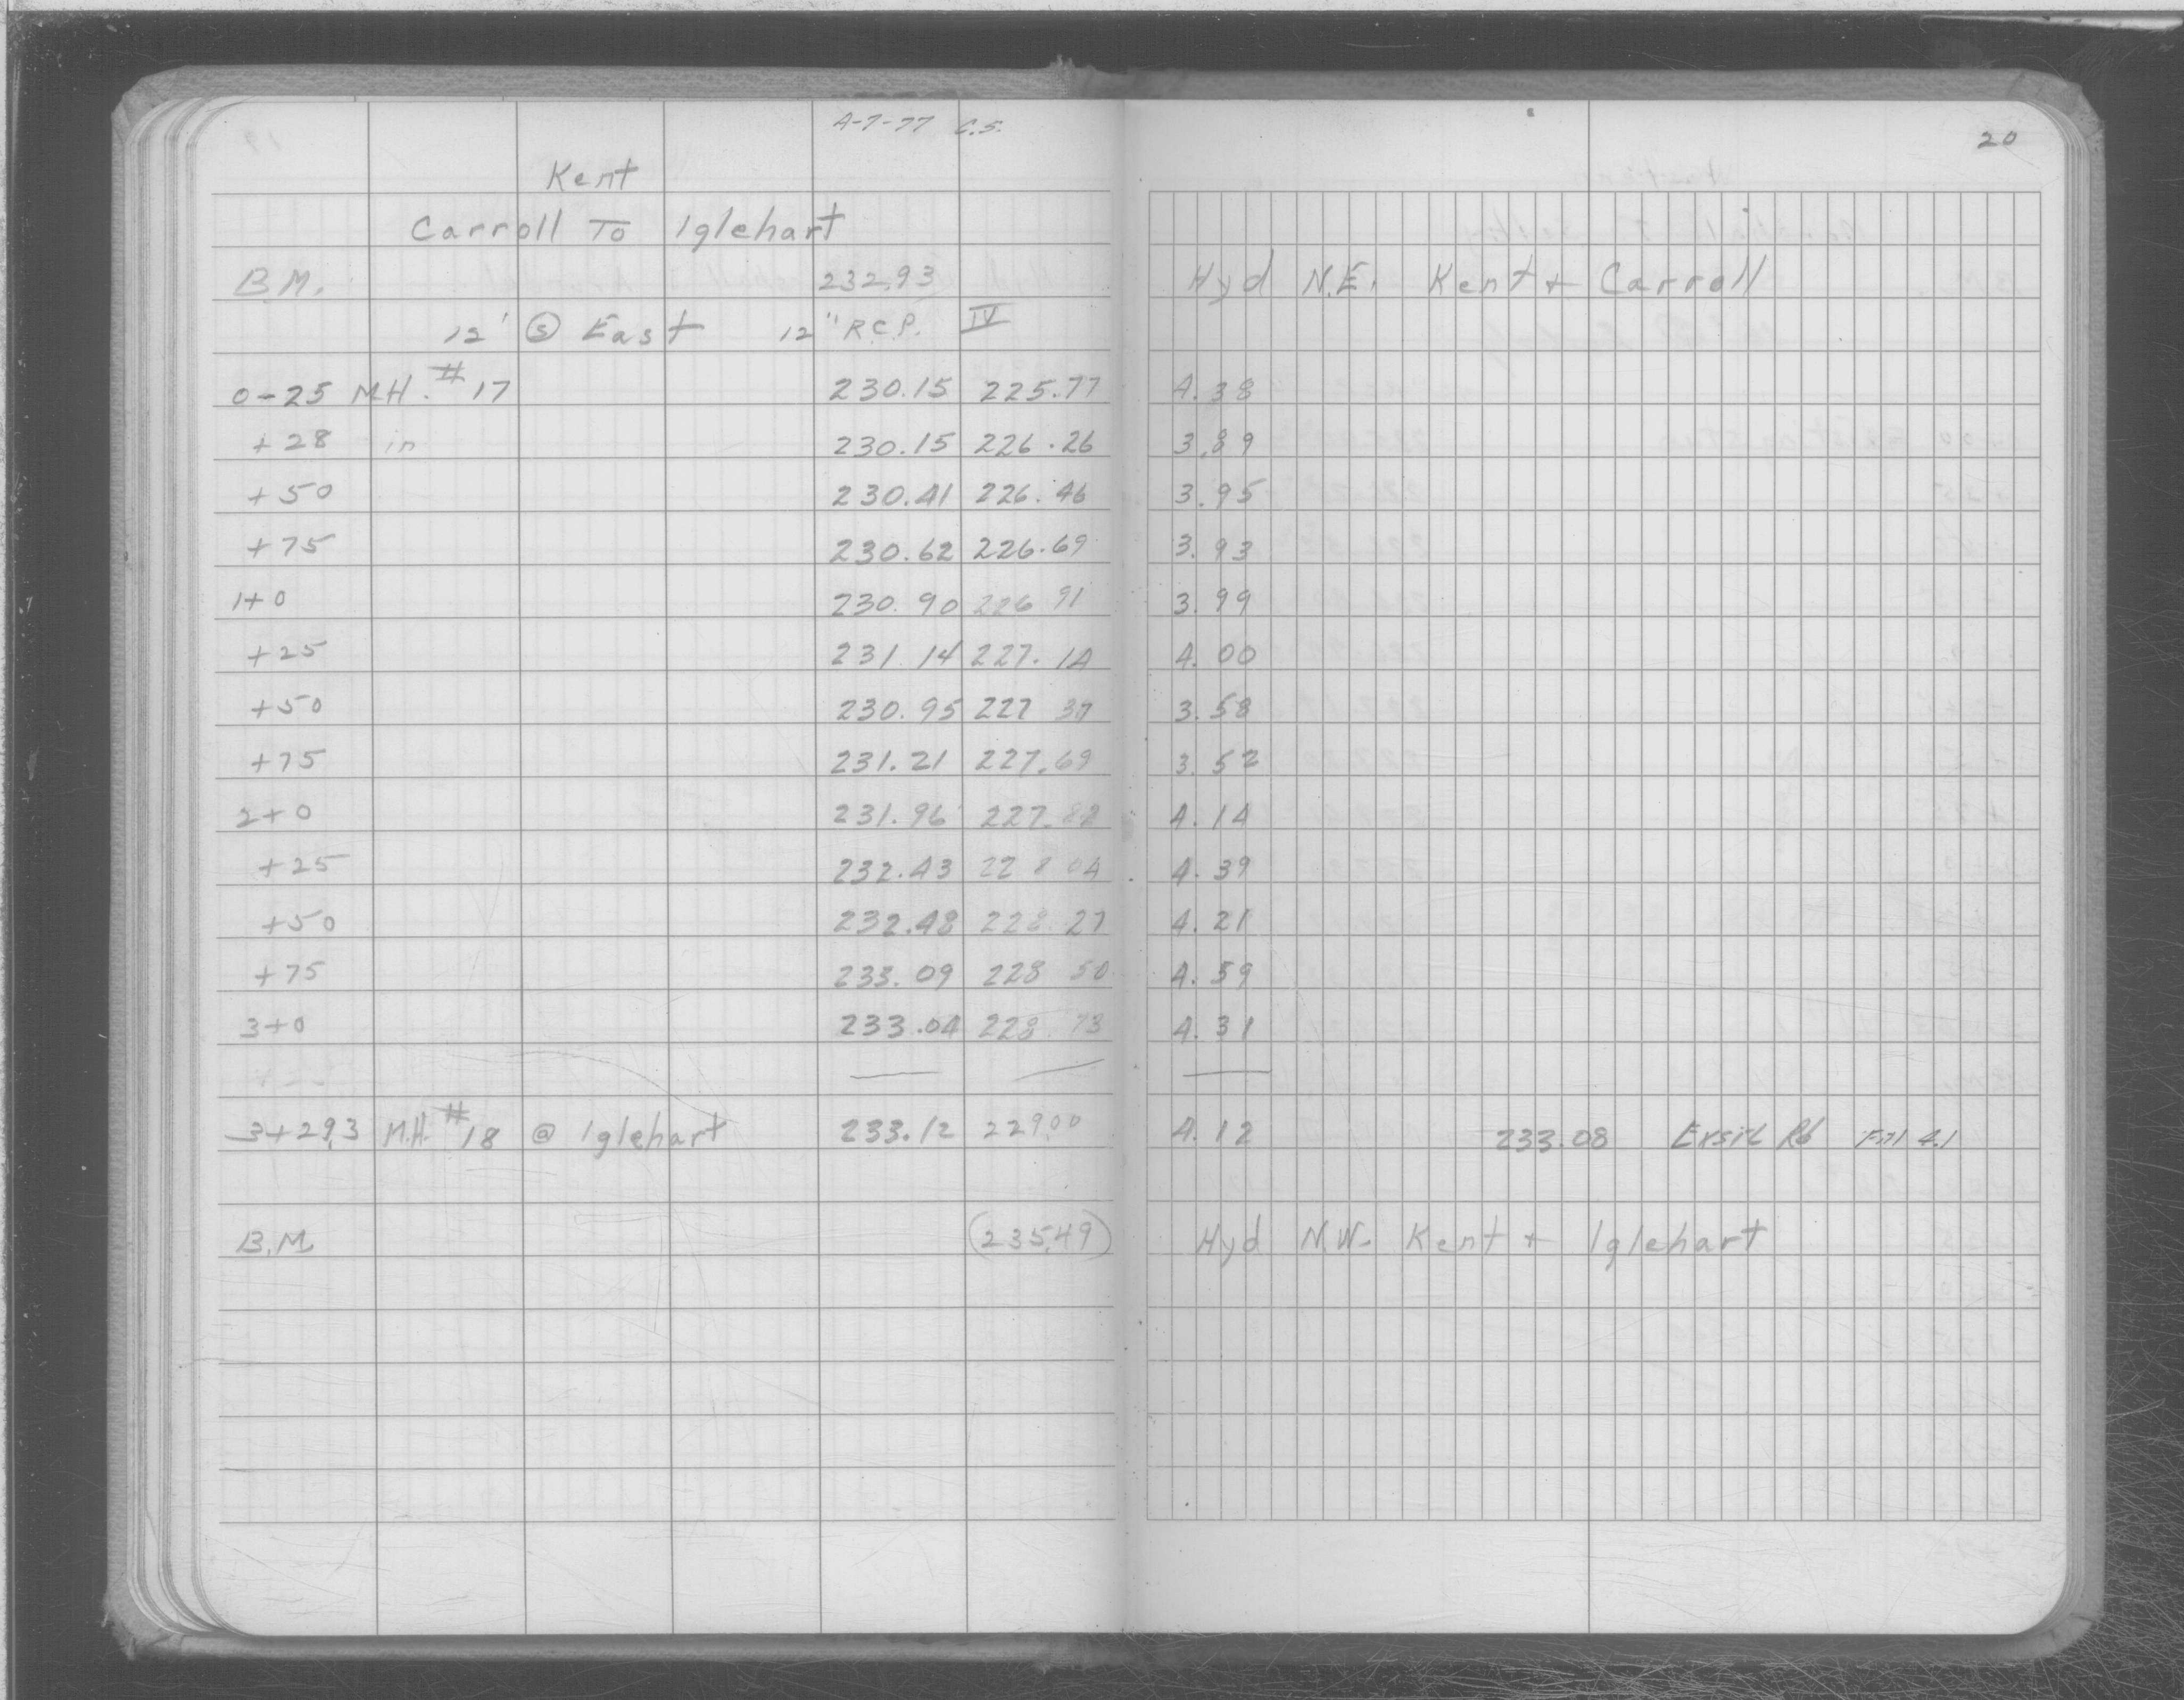 4-7-77 C.S.
20
Kent
Carroll To Iglehart
B.M. 232.93 Hyd N.E. Kent + Carroll
12' Ⓢ East 12" R.C.P. IV
0-25 M.H. #17 230.15 225.77 4.38
+28 in 230.15 226.26 3.89
+50 230.41 226.46 3.95
+75 230.62 226.69 3.93
1+0 230.90 226 91 3.99
+25 231.14 227.14 4.00
+50 230.95 227 37 3.58
+75 231.21 227.69 3.52
2+0 231.96 227.82 4.14
+25 232.43 228 04 4.39
+50 232.48 228.27 4.21
+75 233.09 228 50 4.59
3+0 233.04 228.73 4.31
3+29.3 M.H. #18 @ Iglehart 233.12 229.00 4.12 233.08 4.1
B.M. (235.49) Hyd N.W. Kent + Iglehart